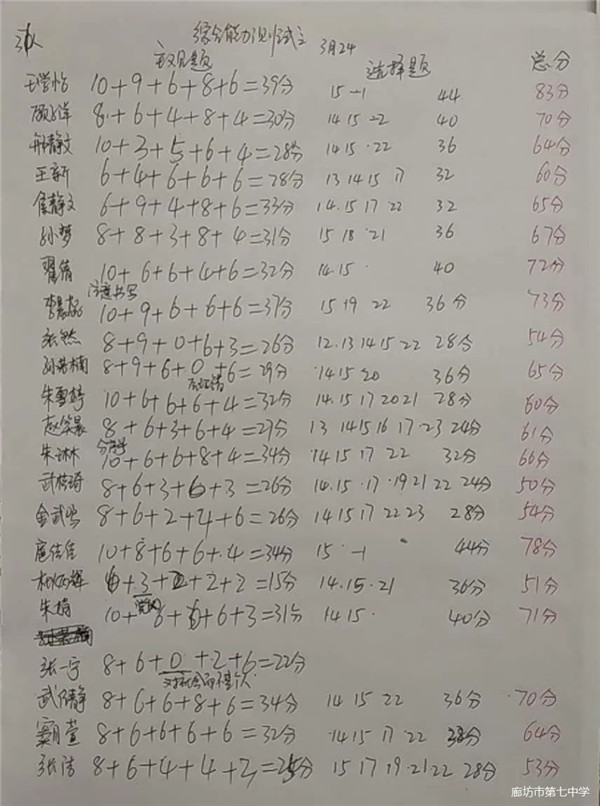 综合能力测试三 3月24
主观题 选择题 总分
10+9+6+8+6=39分 15 -1 44 83分
8+6+4+8+4=30分 14 15 22 40 70分
邢静文 10+3+5+6+4=28分 14 15 22 36 64分
王新 6+4+6+6+6=28分 13 14 15 17 32 60分
侯静文 6+9+4+8+6=33分 14.15 17 22 32 65分
孙梦 8+8+3+8+4=31分 15 18 21 36 67分
翟倩 10+6+6+4+6=32分 14.15 40 72分
注意书写
10+9+6+6+6=37分 15 19 22 36分 73分
张然 8+9+0+6+3=26分 12.13 14 15 22 28分 54分
8+9+6+0+6=29分 14 15 20 36分 65分
朱雪婷 10+6+6+6+4=32分 14.15 17 20 21 28分 60分
赵笑晨 8+6+3+6+4=27分 13 14 15 16 17 23 24分 61分
朱琳木 10+6+6+8+4=34分 14 15 17 22 32分 66分
8+6+3+6+3=26分 14.15.17.19 21 22 24分 50分
8+6+2+4+6=26分 14 15 17 22 23 28分 54分
10+8+6+6+4=34分 15. -1 44分 78分
+3+2+2+2=15分 14.15.21 36分 51分
朱楠 10+6+6+6+3=31分 14 15. 40分 71分
张一宁 8+6+0+2+6=22分
8+6+6+8+6=34分 14 15 22 36分 70分
8+6+6+6+6=32分 14 15 17 22 64分
张洁 8+6+4+4+3=25分 15 17 19 21 22 28分 53分
廊坊市第七中学